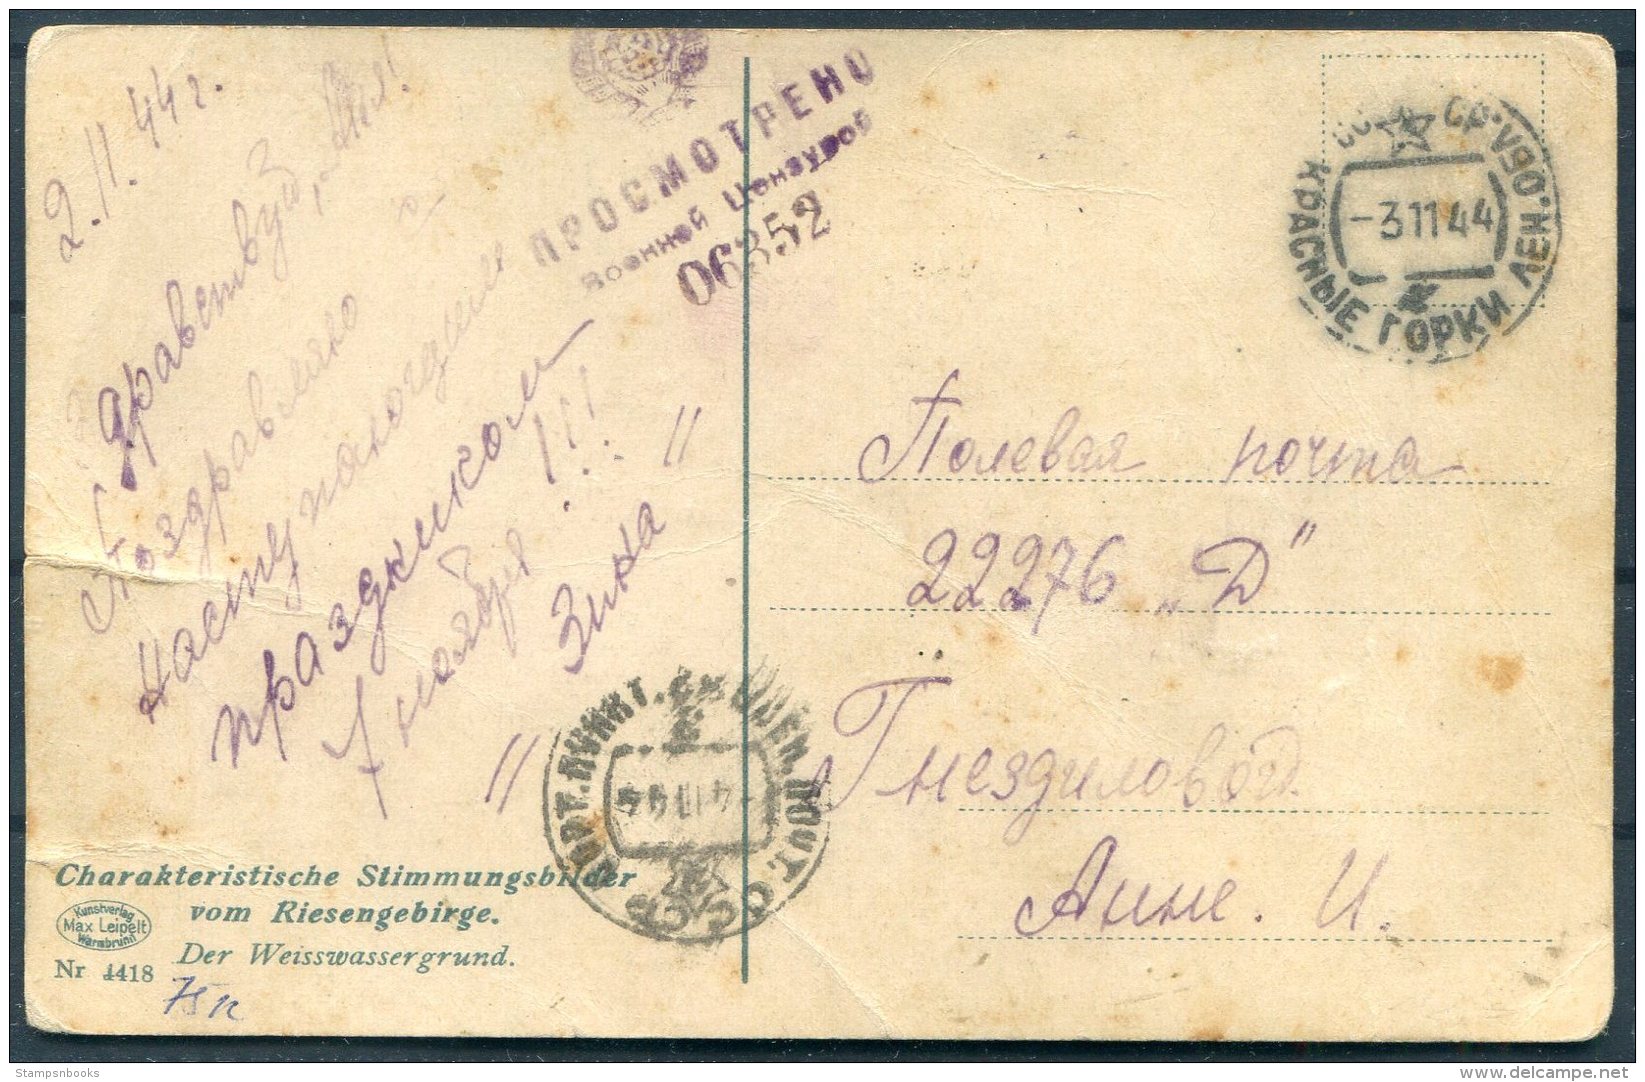 2.11.44 г.
Здравствуй, Аня!
Поздравляю
с
наступающим
праздником
7 ноября!!!
"Зина"
ПРОСМОТРЕНО
Военной Цензурой
06352
СССР
КРАСНЫЕ ГОРКИ ЛЕН. ОБЛ.
-3 11 44
Полевая почта
22276 „Д"
Гнездиловой
Анне. И.
СОРТ. ПУНКТ. ВОЕН. ПОЧТ.
СССР
-4 11 44
Charakteristische Stimmungsbilder
vom Riesengebirge.
Der Weisswassergrund.
Kunstverlag
Max Leipelt
Warmbrunn
Nr 4418
75к
Stampsnbooks
delcampe.net